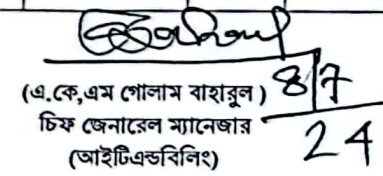 8/7
(এ.কে,এম গোলাম বাহারুল)
24
চিফ জেনারেল ম্যানেজার
(আইটিএন্ডবিলিং)